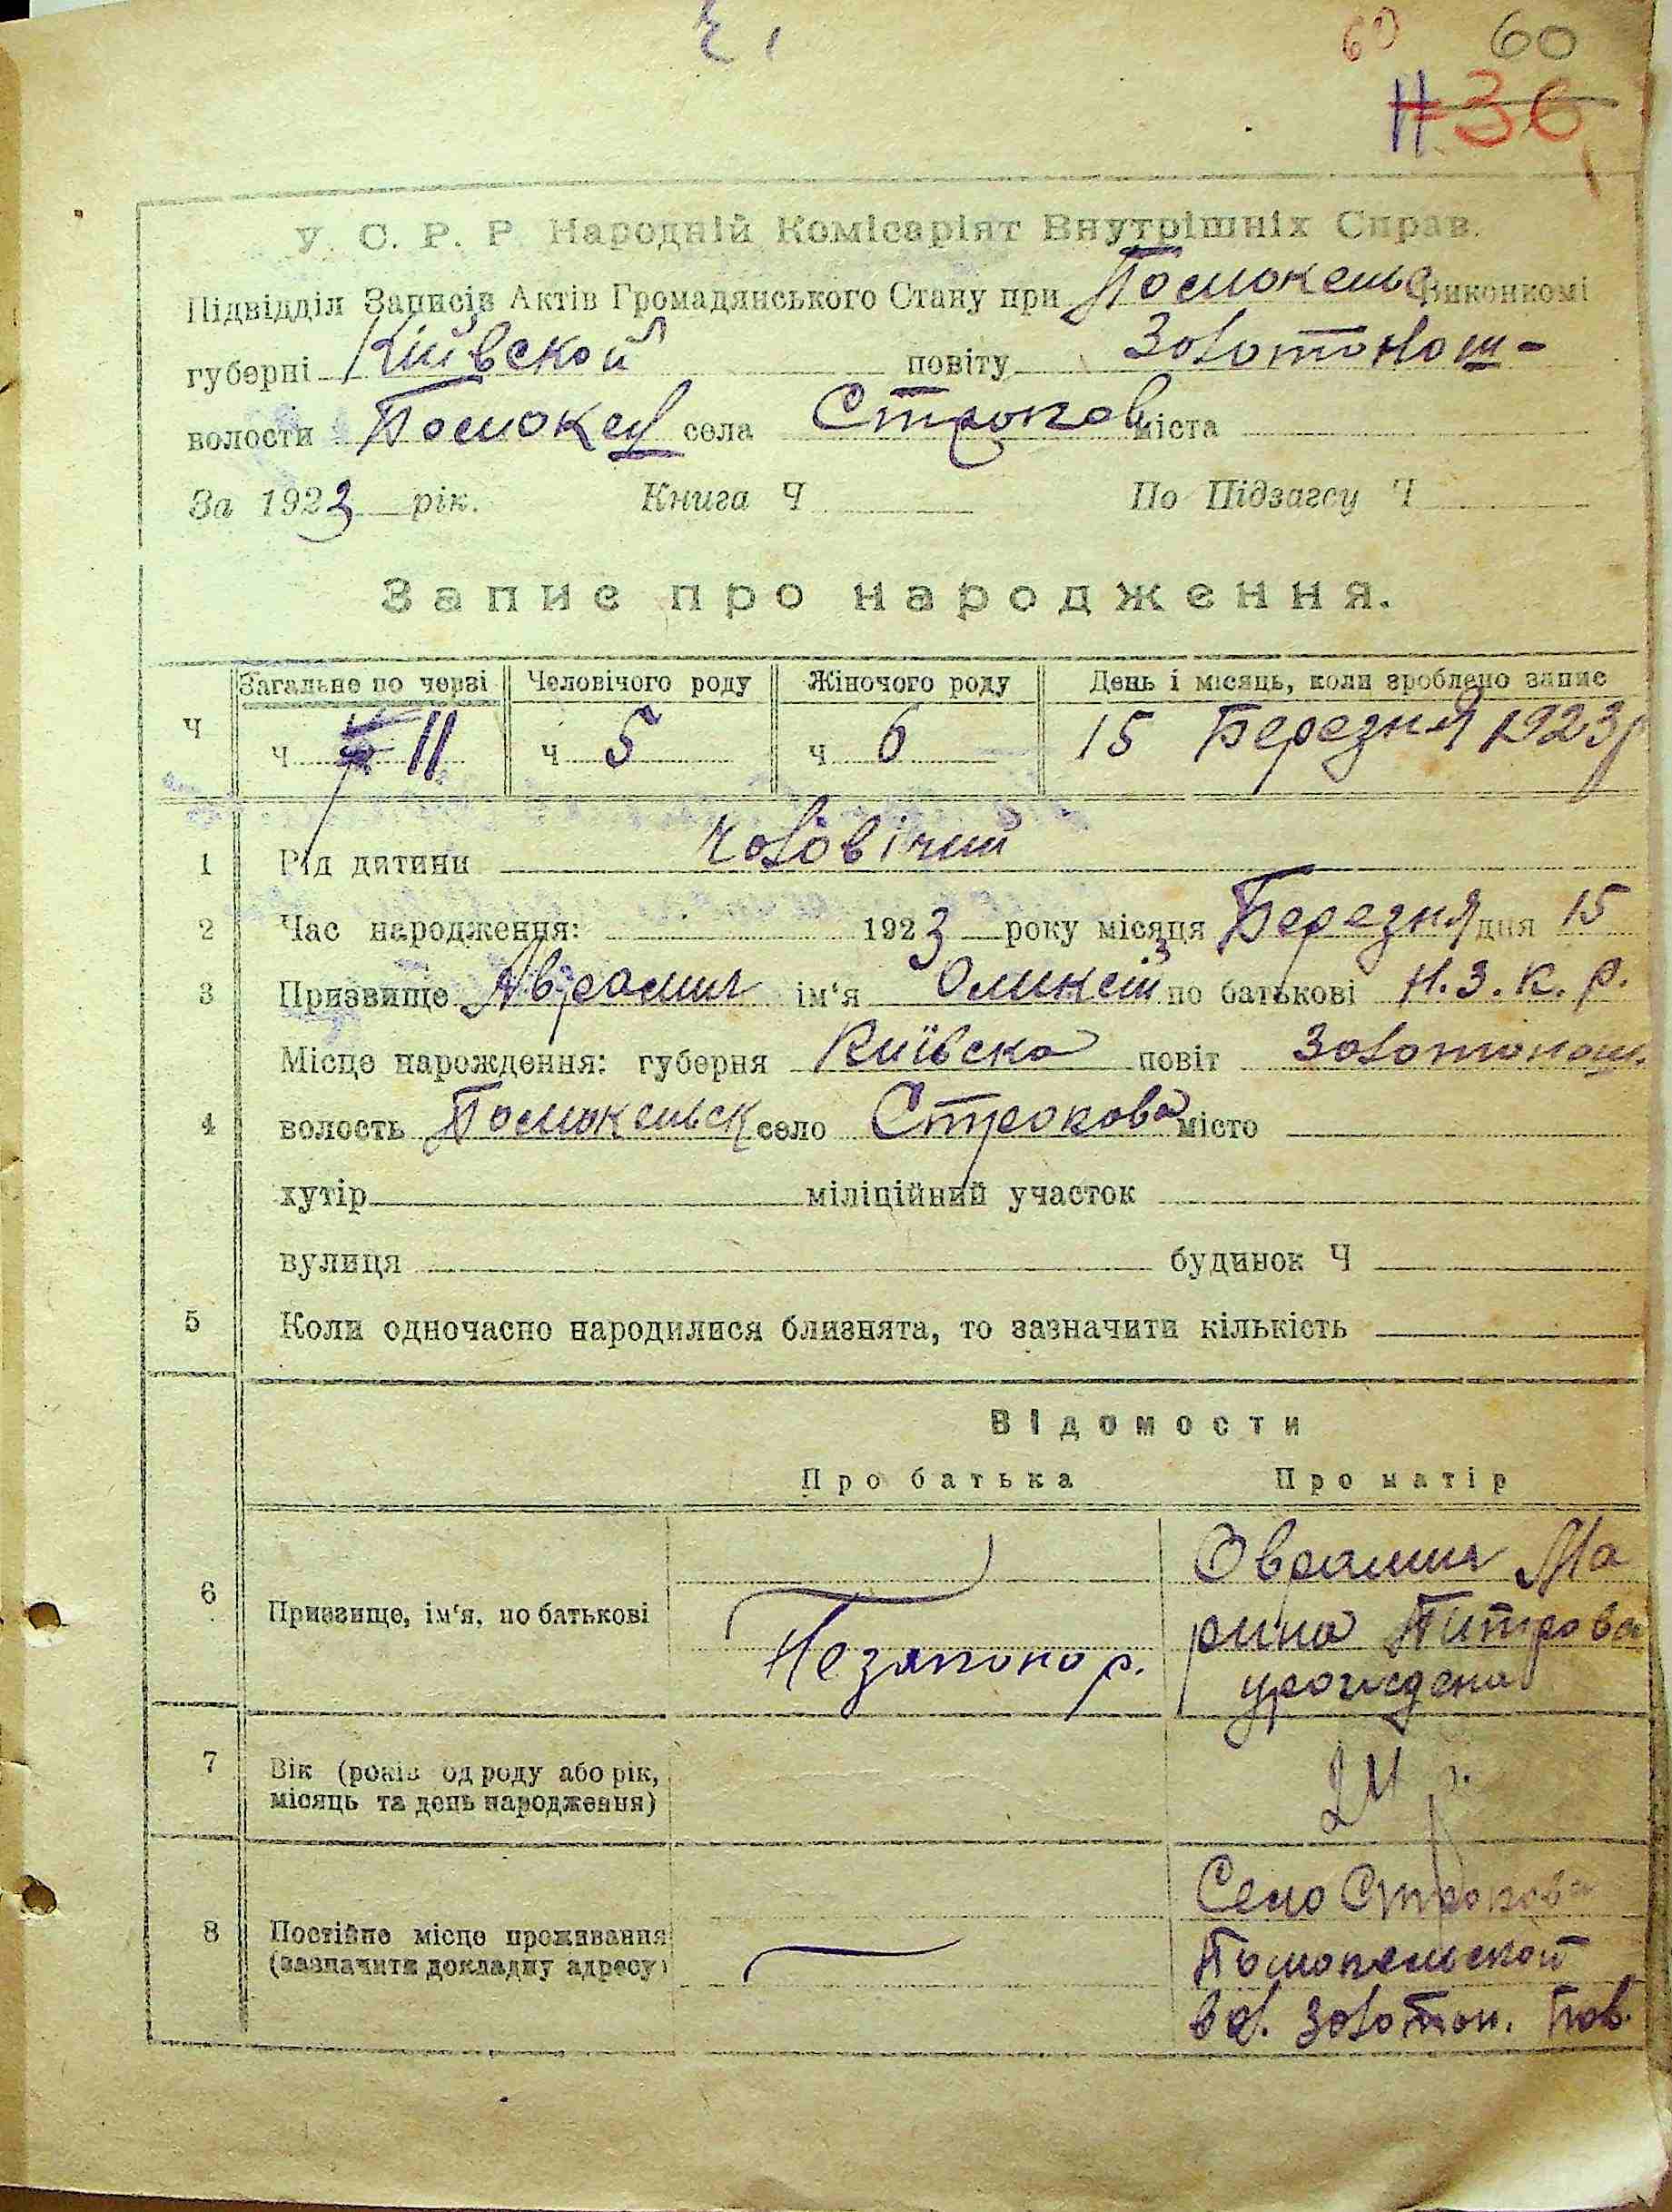 60 60
36
У. С. Р. Р. Народній Комісаріят Внутрішніх Справ.
Підвідділ Записів Актів Громадянського Стану при Виконкомі
губерні Київской повіту Золотонош-
волости села Строков міста
За 1923 рік. Книга Ч По Підзагсу Ч
Запис про народження.
Загальне по черзі Человічого роду Жіночого роду День і місяць, коли зроблено запис
Ч ч 11 ч 5 ч 6 15 Березня 1923 р
1 Рід дитини Чоловічий
2 Час народження: 1923 року місяця Березня дня 15
3 Призвище Аврамич ім‘я по батькові Н.З.К.Р.
Місце нарождення: губерня Київска повіт Золотонош.
4 волость село Строкова місто
хутір міліційний участок
вулиця будинок Ч
5 Коли одночасно народилися близнята, то зазначити кількість
Відомости
Про батька Про матір
Оврамич Ма
6 Призвище, ім‘я, по батькові рина Питрова
Незаконо р. урождена
7 Вік (років од роду або рік,
місяць та день народження)
Село Строкова
8 Постійне місце проживання
(зазначити докладну адресу)
вол. Золотон. Пов.